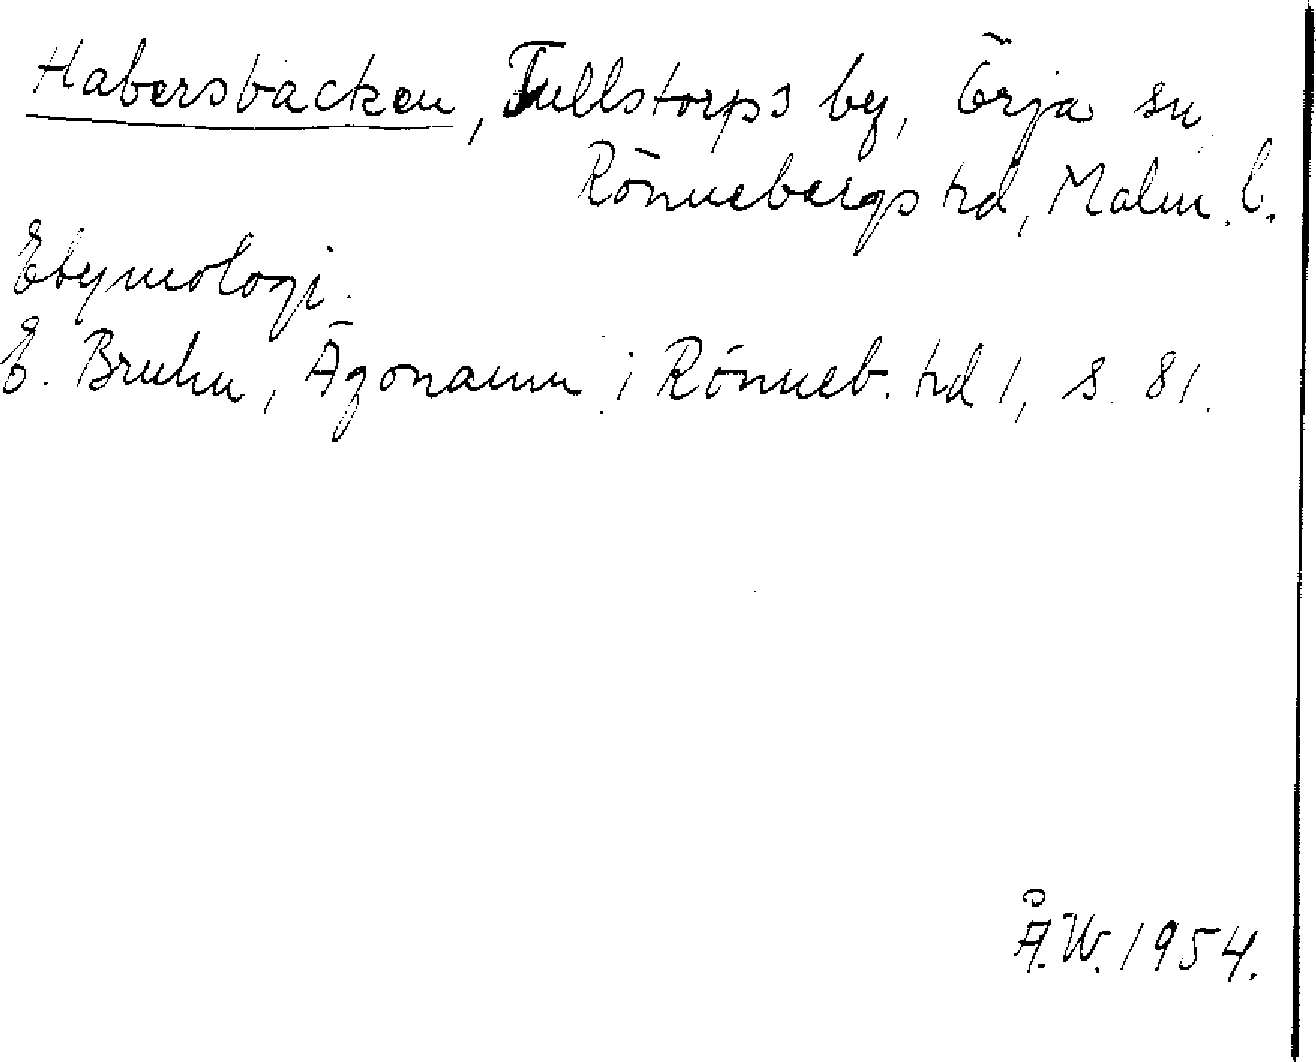 Habersbacken, Tullstorps by, Örja sn
Rönnebergs hd, Malm. l.
Etymologi.
E. Bruhn, Ägonamn i Rönneb. hd 1, s. 81.
Å.W. 1954.